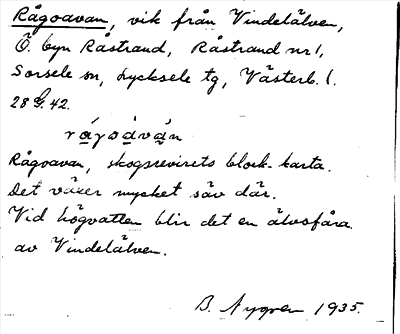 Rågoavan, vik från Vindelälven,
Ö. byn Råstrand, Råstrand nr 1,
Sorsele sn, Lycksele tg, Västerb. l.
28 G. 42.
Rågoavan, skogsrevirets block-karta.
Det växer mycket säv där.
Vid högvatten blir det en älvsfåra
av Vindelälven.
B. Nygren 1935.